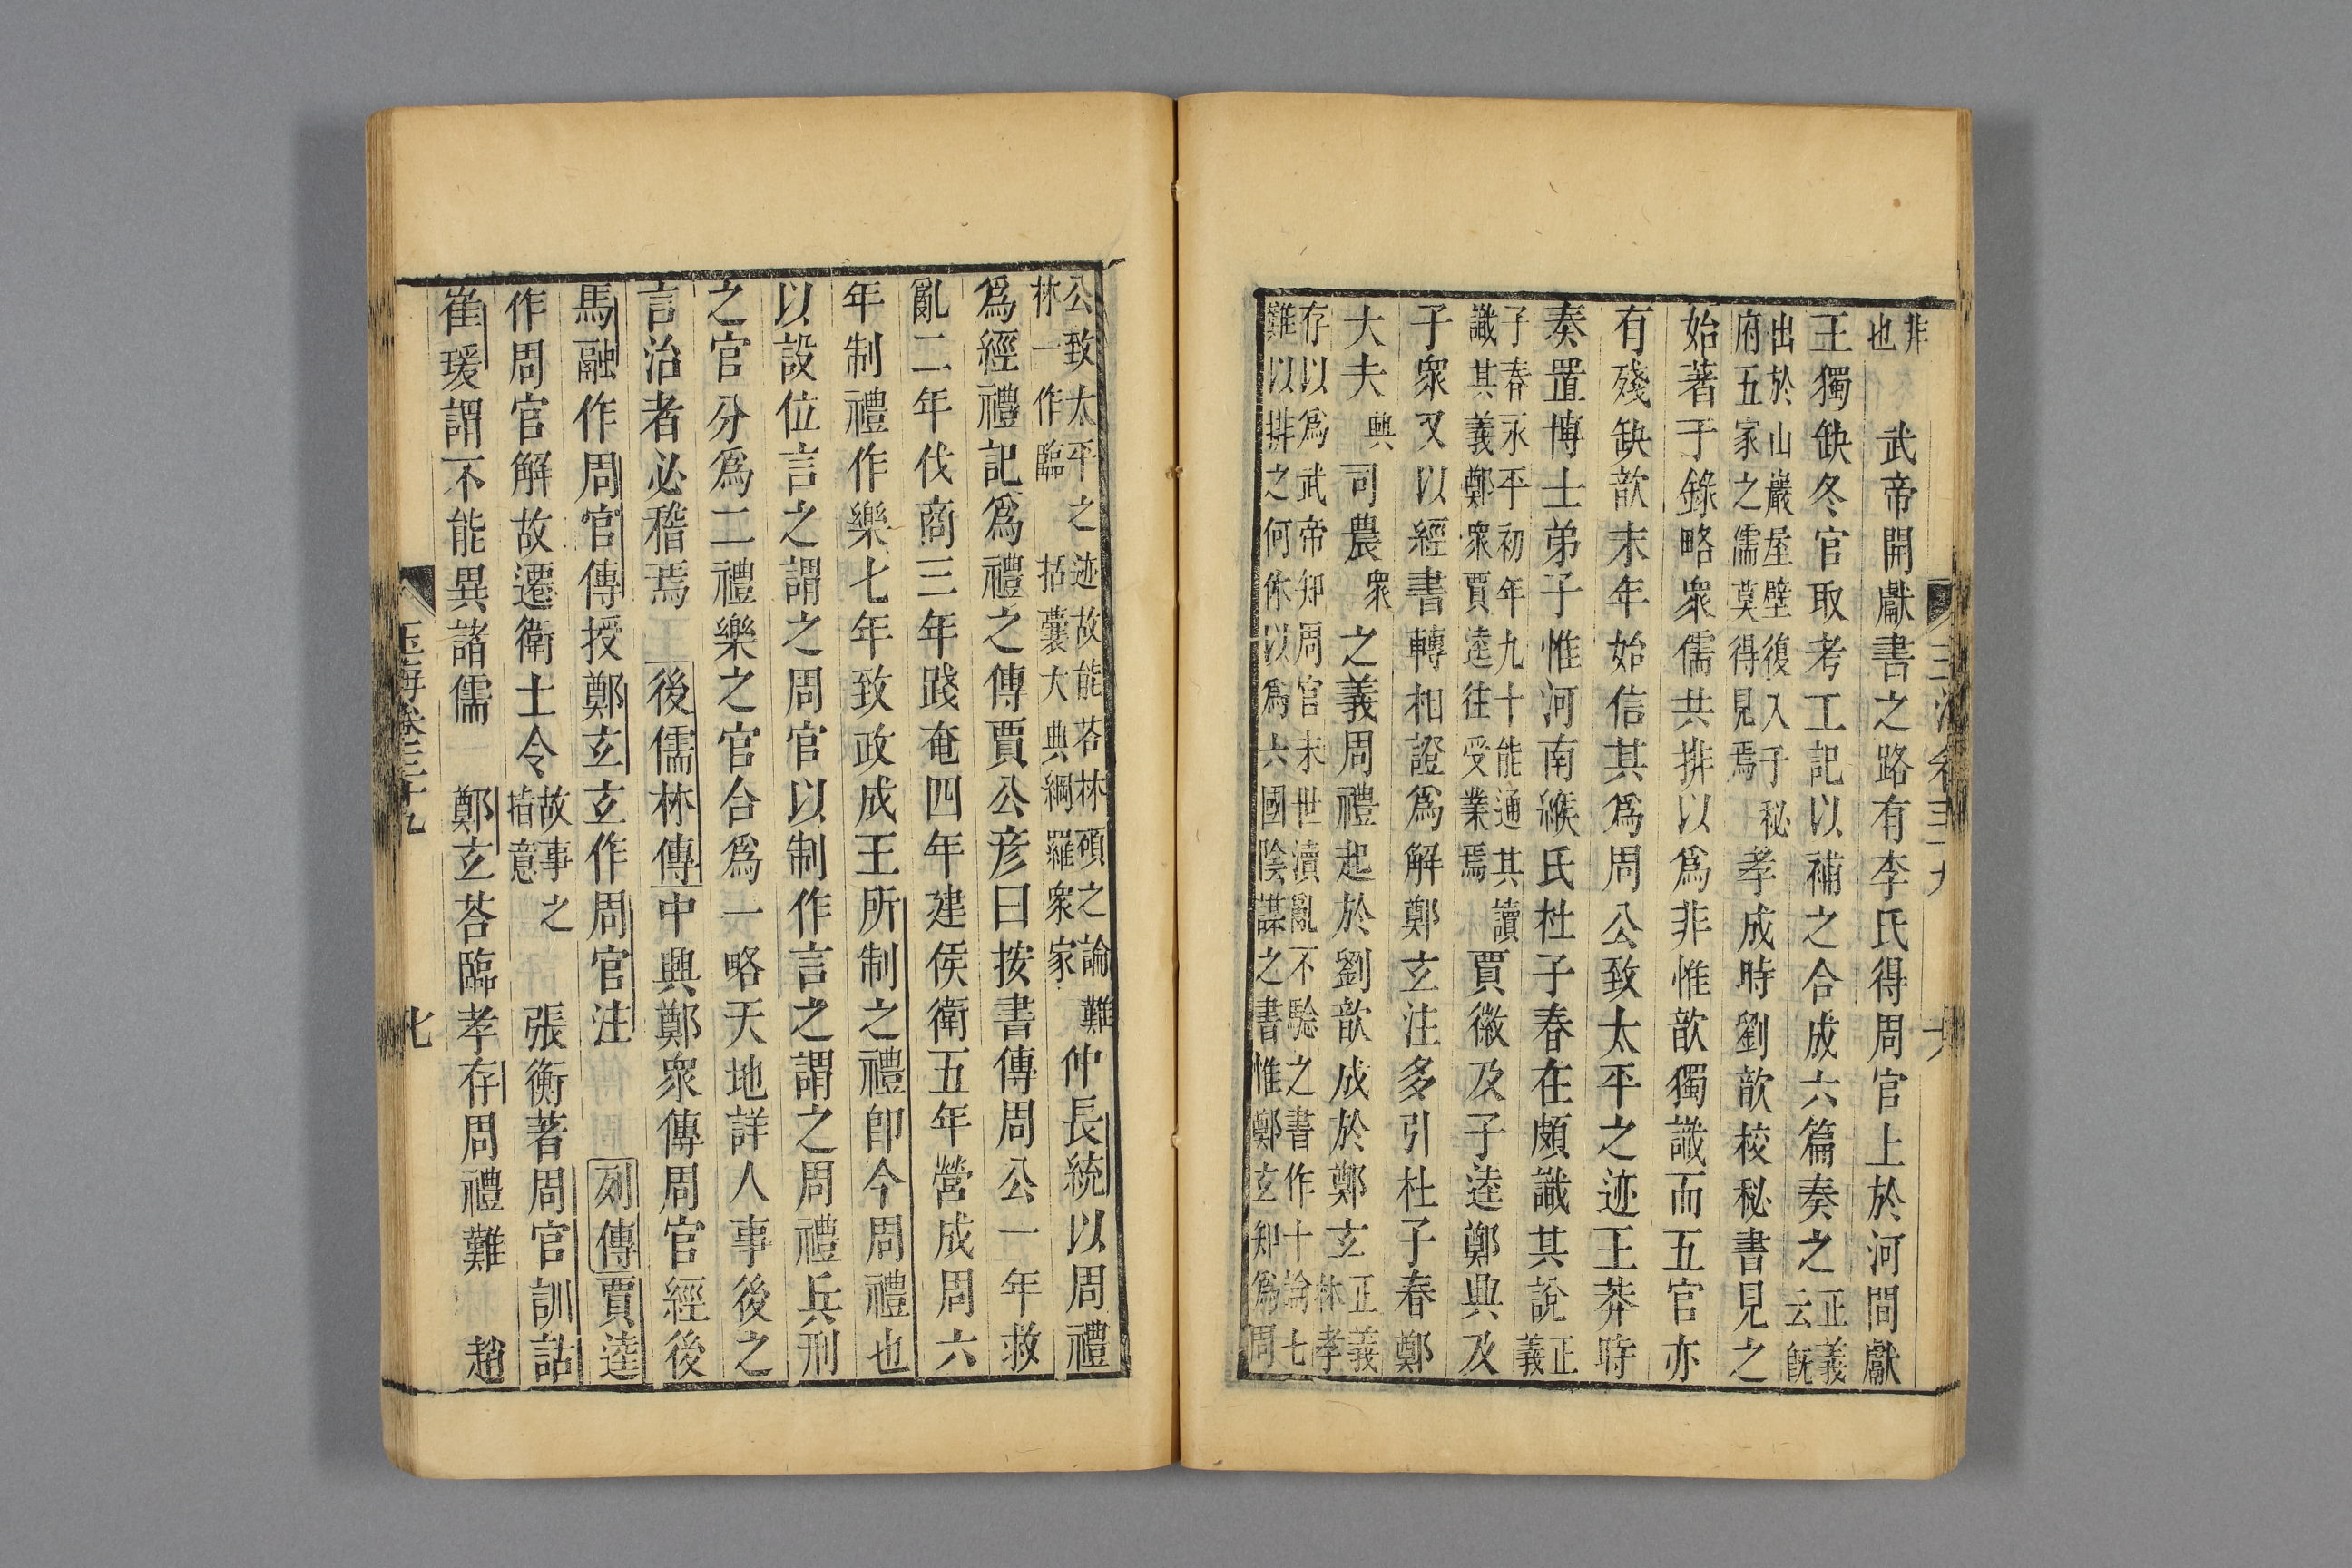 非也 武帝開獻書之路有李氏得周官上於河間獻
王獨缺冬官取考工記以補之合成六篇奏之正義云既
出於山巖屋壁復入于秘府五家之儒莫得見焉孝成時劉歆校秘書見之
始著于錄略衆儒共排以爲非惟歆獨識而五官亦
有殘缺歆末年始信其爲周公致太平之迹王莽時
奏置博士弟子惟河南緱氏杜子春在頗識其說正義
子春永平初年九十能通其讀識其義鄭衆賈逵往受業焉賈徽及子逵鄭興及
子衆又以經書轉相證爲解鄭玄注多引杜子春鄭
大夫興司農衆之義周禮起於劉歆成於鄭玄正義林孝
存以爲武帝知周官末世瀆亂不驗之書作十論七
難以排之何休以爲六國陰謀之書惟鄭玄知爲周
玉海卷三十九 六
公致太平之迹故能荅林碩之論難
林一作臨 括囊大典綱羅衆家 仲長統以周禮
爲經禮記爲禮之傳賈公彦曰按書傳周公一年救
亂二年伐商三年踐奄四年建侯衛五年營成周六
年制禮作樂七年致政成王所制之禮卽今周禮也
以設位言之謂之周官以制作言之謂之周禮兵刑
之官分爲二禮樂之官合爲一略天地詳人事後之
言治者必稽焉 後儒林傳中興鄭衆傳周官經後
馬融作周官傳授鄭玄玄作周官注 列傳賈逵
作周官解故遷衛士令故事之指意 張衡著周官訓詁
崔瑗謂不能異諸儒 鄭玄荅臨孝存周禮難 趙
玉海卷三十九 七